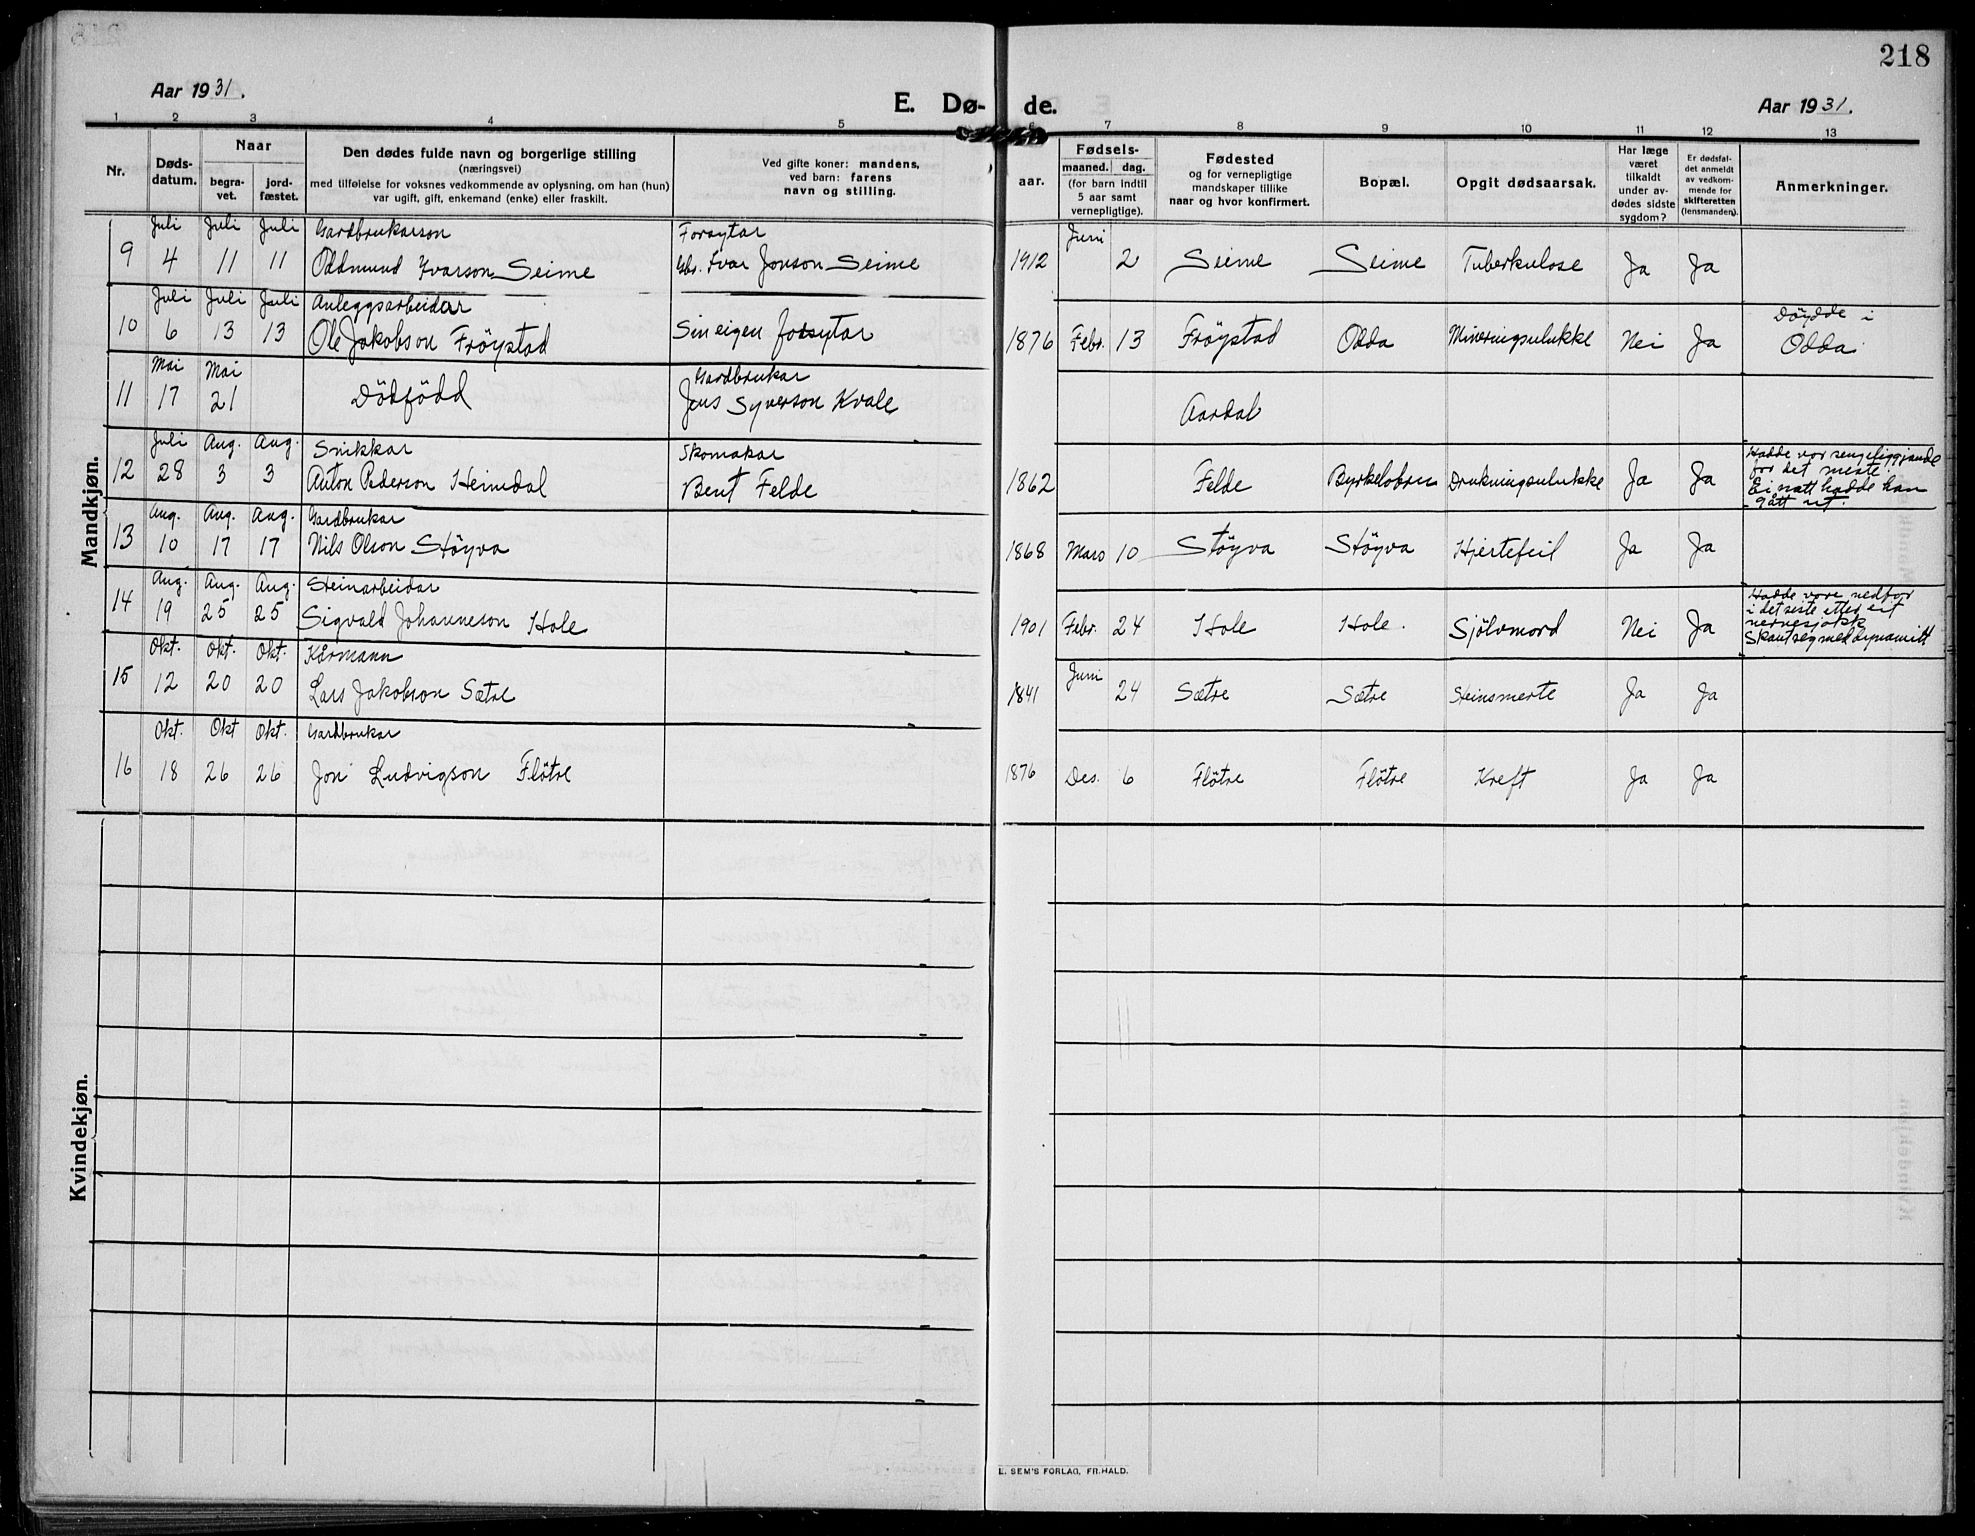 218
Aar 1931.
E. Dø-
de.
Aar 1931.
1 2 3 4 5 6 7 8 9 10 11 12 13
Nr.
Døds-
datum.
Naar
begra-
vet.
jord-
fæstet.
Den dødes fulde navn og borgerlige stilling
(næringsvei)
med tilføielse for voksnes vedkommende av oplysning, om han (hun)
var ugift, gift, enkemand (enke) eller fraskilt.
Ved gifte koner: mandens,
ved barn: farens
navn og stilling.
aar.
Fødsels-
maaned. dag.
(for barn indtil
5 aar samt
vernepligtige).
Fødested
og for vernepligtige
mandskaper tillike
naar og hvor konfirmert.
Bopæl.
Opgit dødsaarsak.
Har læge
været
tilkaldt
under av-
dødes sidste
sygdom?
Er dødsfal-
det anmeldt
av vedkom-
mende for
skifteretten
(lensmanden).
Anmerkninger.
Mandkjøn.
Juli Juli Juli Gardbrukarson Forsytar Juni
9 4 11 11 Oddmund Ivarson Seime Gbr. Ivar Jonson Seime 1912 2 Seime Seime Tuberkulose Ja Ja
Juli Juli Juli Anleggsarbeidar Döydde i
10 6 13 13 Ole Jakobson Fröystad Sin eigen forsytar 1876 Febr. 13 Fröystad Odda Mineringsulukke Nei Ja Odda
Mai Mai Gardbrukar
11 17 21 Dödfödd Jens Syverson Kvale Aardal
Juli Aug. Aug. Snikkar Skomakar
12 28 3 3 Anton Pederson Heimdal Bent Felde 1862 Felde Byrkeloben Drukningsulukke Ja Ja
Hadde vor sengeliggjande
for det meste.
Ei natt hadde han
gått ut.
Aug. Aug. Aug. Gardbrukar
13 10 17 17 Nils Olson Stöyva 1868 Mars 10 Stöyva Stöyva Hjertefeil Ja Ja
Aug. Aug. Aug. Steinarbeidar
14 19 25 25 Sigvald Johanneson Hole 1901 Febr. 24 Hole Hole. Sjölvmord Nei Ja
Hadde vore nedfor
i det siste etter eit
nervesjokk
Skaut seg med dynamitt
Okt. Okt. Okt. Kårmann Juni
15 12 20 20 Lars Jakobson Sætre 1841 24 Sætre Sætre Steinsmerte Ja Ja
Okt. Okt Okt. Gardbrukar
16 18 26 26 Jon Ludvigson Flötre 1876 Des. 6 Flötre Flötre Kreft Ja Ja
Kvindekjøn.
E. SEM'S FORLAG, FR.HALD.